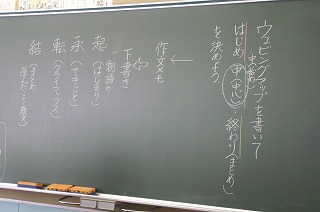 ウェビングマップを書いて
中(始め)
はじめ 中(中心)・終わり(まとめ)
を決めよう
作文メモ
下書き
物語の
起(はじまり)
承(できごと)
転(クライマックス)
結(まとめ